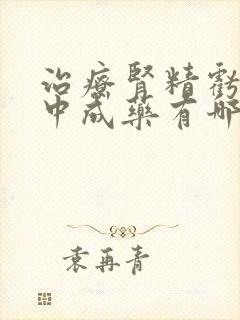 治療腎精虧
中成藥有哪
袁再青